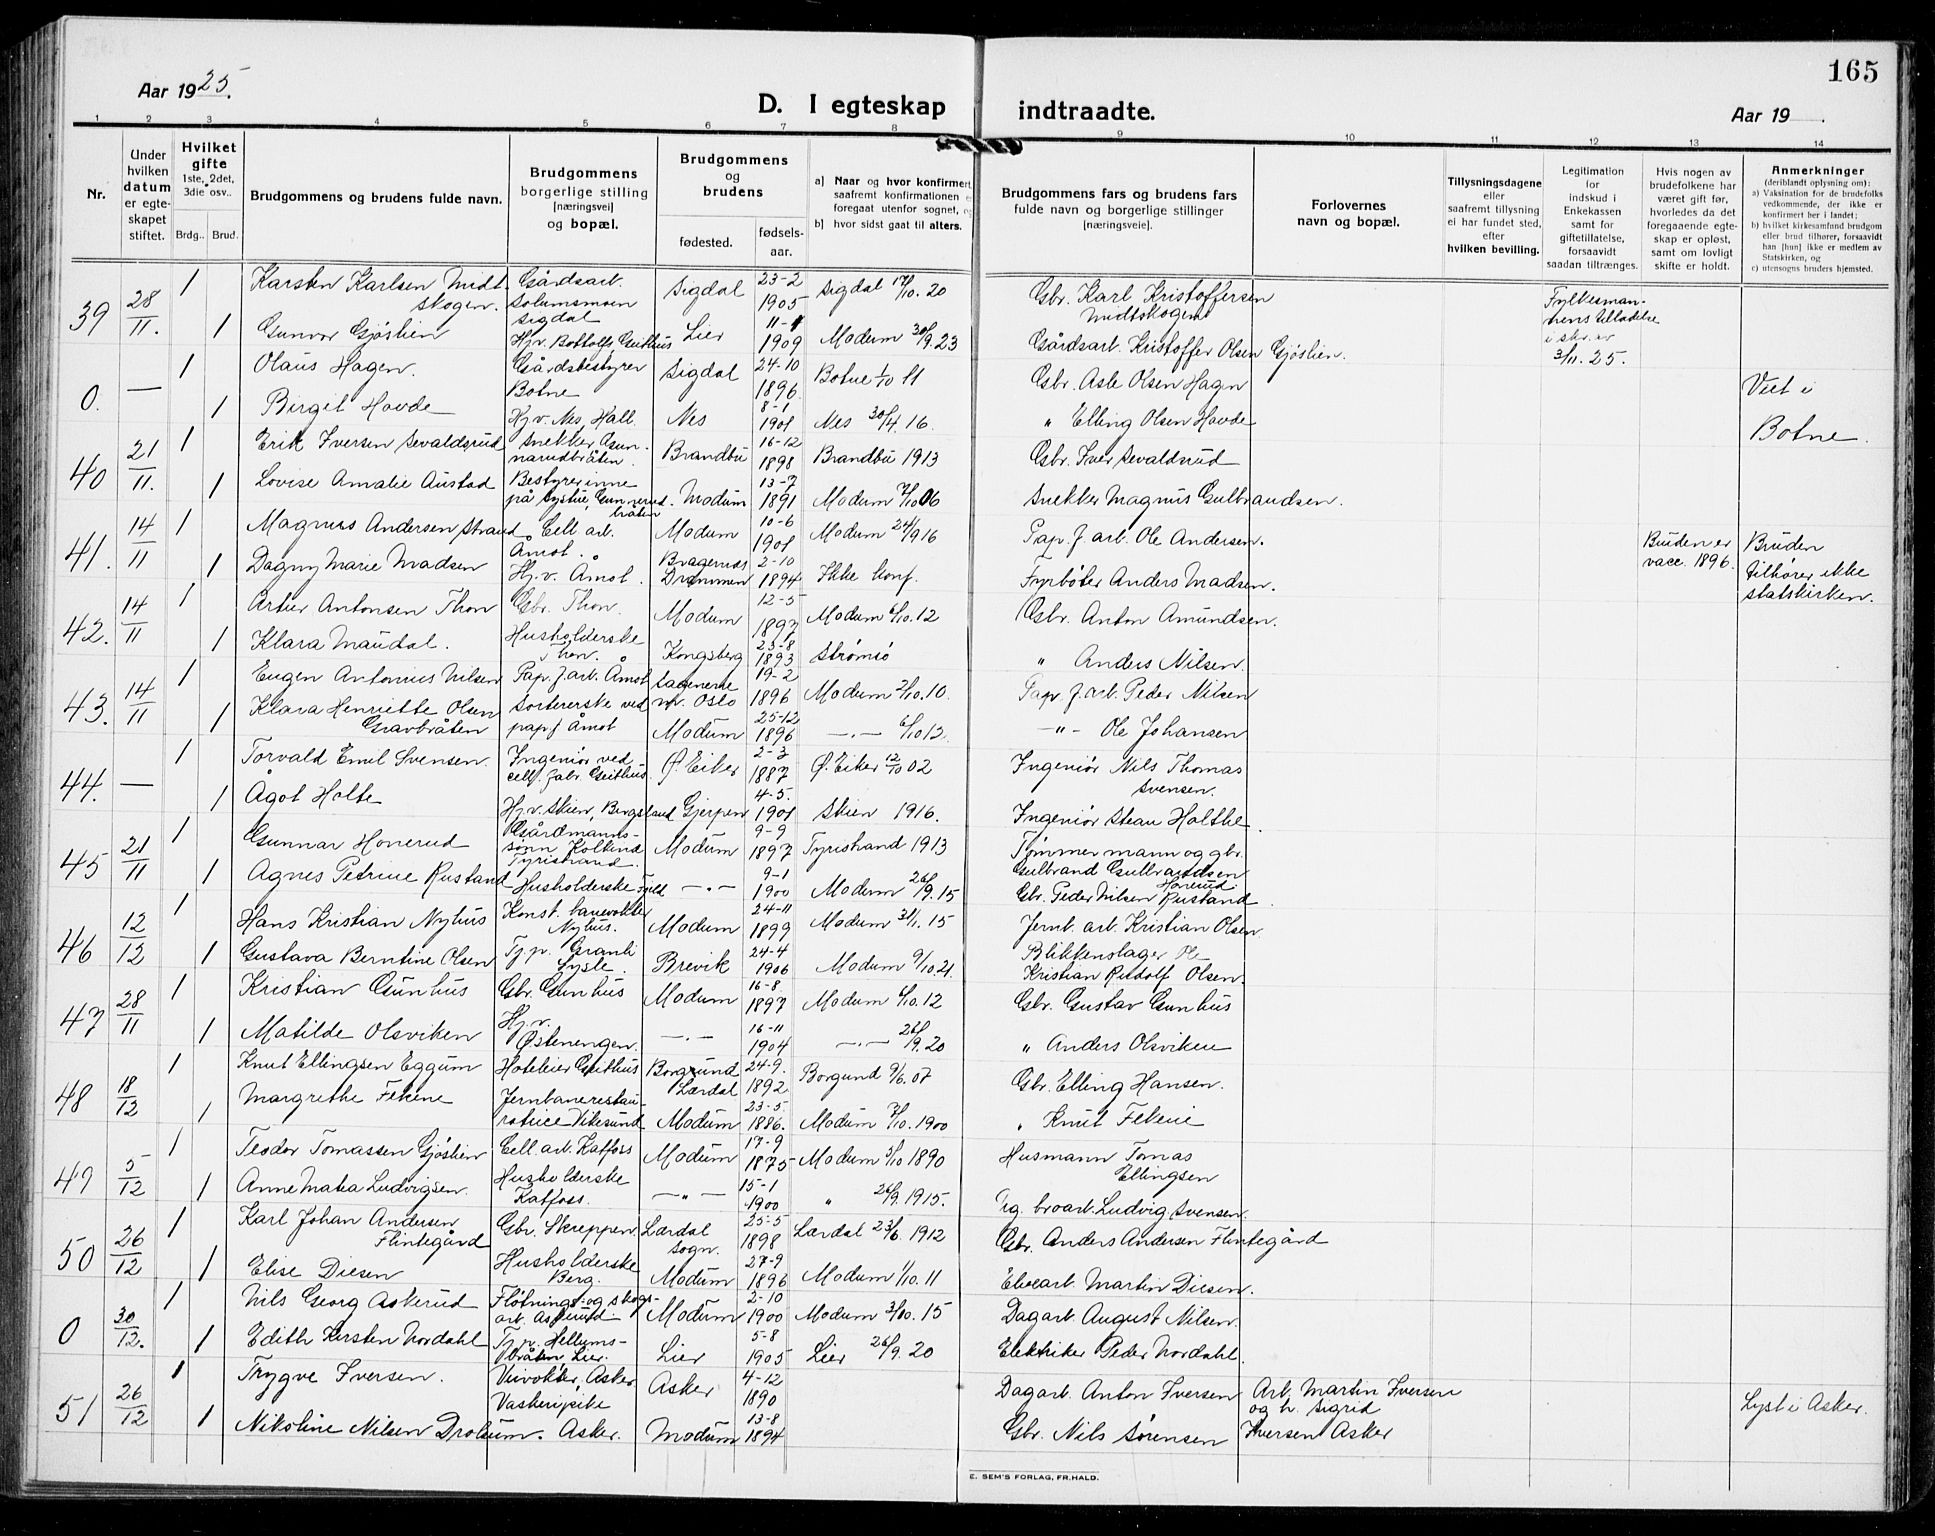 165
Aar 1925.
D. I egteskap indtraadte.
Aar 19 .
1 2 3 4 5 6 7 8 9 10 11 12 13 14
Nr.
Under hvilken datum er egteskapet stiftet.
Hvilket gifte 1ste, 2det, 3die osv..
Brdg.. Brud.
Brudgommens og brudens fulde navn.
Brudgommens borgerlige stilling [næringsvei] og bopæl.
Brudgommens og brudens
fødested.
fødsels-aar.
a] Naar og hvor konfirmert, saafremt konfirmationen foregaat utenfor sognet,
b] hvor sidst gaat til alters.
Brudgommens fars og brudens fars fulde navn og borgerlige stillinger [næringsveie].
Forlovernes navn og bopæl.
Tillysningsdagene eller saafremt tillysning ei har fundet sted, efter hvilken bevilling.
Legitimation for indskud i Enkekassen samt for giftetillatelse, forsaavidt saadan tiltrænges.
Hvis nogen av brudefolkene har været gift før, hvorledes da det foregaaende egteskap er opløst, samt om lovligt skifte er holdt.
Anmerkninger (deriblandt oplysning om):
a) Vaksination for de brudefolks vedkommende, der ikke er konfirmert her i landet;
b) hvilket kirkesamfund brudgom eller brud tilhører, forsaavidt han [hun] ikke er medlem av Statskirken, og
c) utensogns bruders hjemsted.
39 28/11. 1 Karsten Karlsen Midtskogen. Gårdsarb. Solumsmoen Sigdal Sigdal 23-2 1905 Sigdal 17/10. 20 Gbr. Karl Kristoffersen Midtskogen Fylkesmannens tilladelse i skr. av 3/11. 25.
1 Gunvor Gjøslien Hj.v. Bottolfs Geithus Lier 11-1 1909 Modum 30/9. 23 Gårdsarb. Kristoffer Olsen Gjøslien.
0. — 1 Olaus Hagen. Gårdsbestyrer Botne Sigdal 24-10 1896. Botne 1/10 11 Gbr. Asle Olsen Hagen Viet i Botne.
1 Birgit Hovde Hj.v. Nes, Hall. Nes 8-1 1901 Nes 30/4. 16. " Elling Olsen Hovde
40 21/11. 1 Erik Iversen Sevaldsrud Snekker Gunnarudbråten. Brandbu 16-12 1898 Brandbu 1913 Gbr. Iver Sevaldsrud
1 Lovise Amalie Austad Bestyrerinne på systue, Gunnerudbråten. Modum 13-7 1891 Modum 7/10 06 Snekker Magnus Gulbrandsen.
41. 14/11 1 Magnus Andersen Strand Cell. arb. Åmot. Modum 10-6 1901 Modum 24/9 16 Pap. f. arb. Ole Andersen. Bruden er vacc. 1896. Bruden tilhører ikke statskirken.
1 Dagny Marie Madsen Hj.v. Åmot. Bragernes Drammen 2-10 1894 Ikke konf. Fyrbøter Anders Madsen.
42. 14/11 1 Artur Antonsen Thon Gbr. Thon. Modum 12-5 1897 Modum 6/10. 12 Gbr. Anton Amundsen.
1 Klara Maudal. Husholderske Thon. Kongsberg 23-8 1893 Strømsø " Anders Nilsen.
43. 14/11 1 Eugen Antonius Nilsen Pap. f. arb. Åmot Sagenerne v. Oslo 19-2 1896 Modum 2/10. 10. Pap. f. arb. Peder Nilsen
1 Klara Henriette Olsen Gravbråten Sortererske ved papf Åmot Modum 25-12 1896 —·— 6/10 12. —"— Ole Johansen
44. — 1 Torvald Emil Svensen. Ingeniør ved cell. fabr. Geithus. Ø. Eiker 2-3 1887 Ø. Eiker 12/10 02 Ingeniør Nils Thomas Svensen.
1 Ågot Holte Hj.v. Skien, Bergsland Gjerpen 4-5. 1901 Skien 1916. Ingeniør Stean Holthe.
45 21/11 1 Gunnar Honerud Gårdmannssønn Koltind Tyristrand. Modum 9-9 1897 Tyristrand 1913 Tømmermann og gbr. Gulbrand Gulbrandsen Honerud
1 Agnes Petrine Rustand Husholderske —·— 9-1 1900 Modum 26/9. 15 Gbr. Peder Nilsen Rustand.
46 12/12 1 Hans Kristian Nyhus Konst. banevokter Nyhus. Modum 24-11 1899 Modum 31/1. 15 Jernb. arb. Kristian Olsen
1 Gustava Berntine Olsen Tj.p. Granli Sysle. Brevik 24-4 1906 Modum 9/10. 21. Blikkenslager Ole Kristian Rudolf Olsen.
47 28/11 1 Kristian Gunhus Gbr. Gunhus Modum 16-8 1897 Modum 6/10. 12 Gbr. Gustav Gunhus
1 Matilde Olsviken Hj.v. Østenengen. —·— 16-11 1904 —·— 26/9. 20 " Anders Olsviken
48 18/12 1 Knut Ellingsen Eggum Hoteleier Geithus Borgund Lærdal 24-9. 1892 Borgund 9/6. 07 Gbr. Elling Hansen.
1 Margrethe Fekene Jernbanerestauratrice Vikesund Modum 23-5. 1886. Modum 7/10. 1900 " Knut Fekene
49 5/12 1 Teodor Tomassen Gjøslien Cell. arb. Katfoss Modum 17-9 1875 Modum 5/10 1890 Husmann Tomas Ellingsen
1 Anne Matea Ludvigsen. Husholderske Katfoss. —"— 15-1 1900 " 26/9. 1915. Tg. broarb. Ludvig Svensen.
50 26/12 1 Karl Johan Andersen Flintegård Gbr. Skreppen Lærdal sogn. 25-5 1898 Lærdal 23/6 1912 Gbr. Anders Andersen Flintegård
1 Elise Diesen Husholderske Berg. Modum 27-9 1896 Modum 1/10. 11 Elvearb. Martin Diesen.
0 30/12. 1 Nils Georg Askerud Fløtnings- og skogs-arb. Askerud. Modum 2-10 1900 Modum 3/10. 15 Dagarb. August Nilsen.
1 Edith Kirsten Nordahl Tj.p. Hellumsbråten, Lier. Lier 5-8 1905 Lier 26/9. 20 Elektriker Peder Nordahl.
51 26/12 1 Trygve Iversen. Veivokter, Asker Asker 4-12 1890 Dagarb. Anton Iversen Arb. Martin Iversen og h. Sigrid Iversen Asker Lyst i Asker.
1 Nikoline Nilsen Drolsum. Vaskeripike Asker. Modum 13-8 1894 Gbr. Nils Sørensen
E. SEM'S FORLAG, FR.HALD.